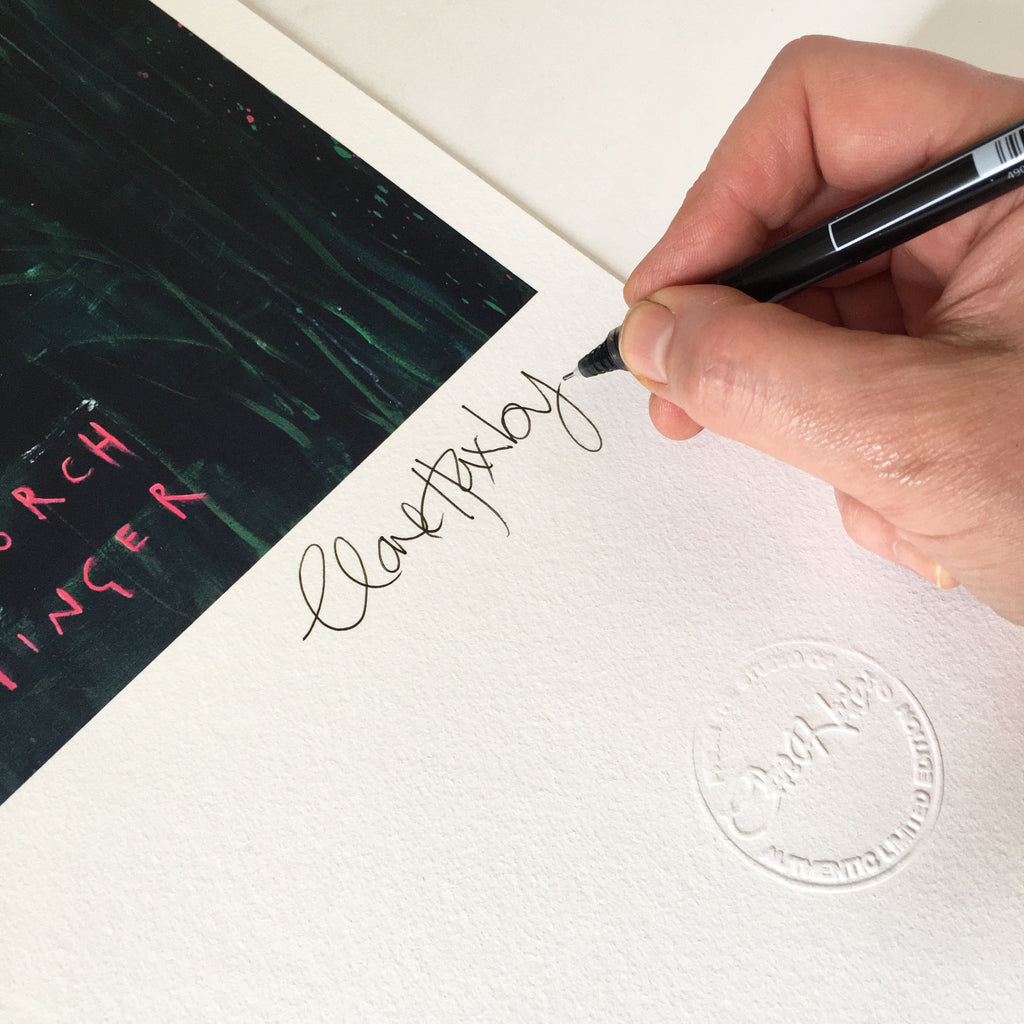 ORCH
INGER
Clare Haxby
AUTHENTIC LIMITED EDITION
490